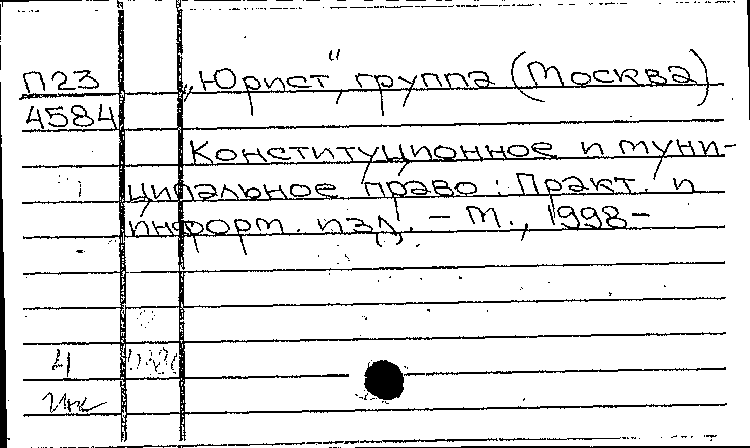 П23
4584
„Юрист“, группа (Москва)
Конституционное и муни-
ципальное право : Практ. и
информ. изд. – М., 1998–
4